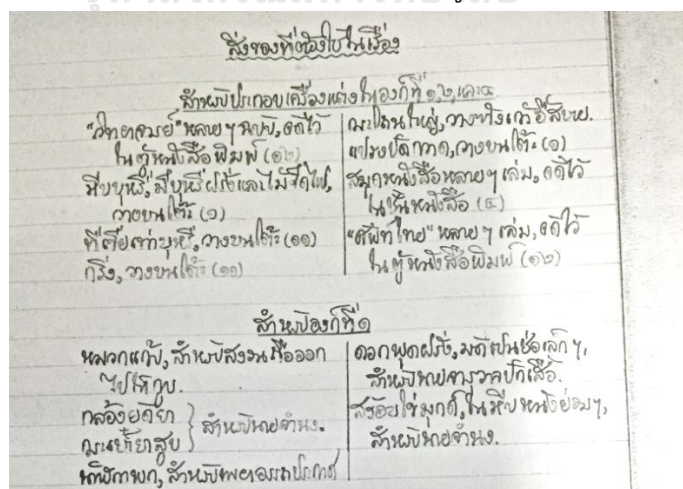 สิ่งของที่ต้องใช้ในเรื่อง
สำหรับประกอบเครื่องแต่งในองก์ที่ ๑,๒,และ๔
"วิทยาจารย์" หลาย ๆ ฉบับ, จดไว้
ในตู้หนังสือพิมพ์ (๑๒)
หีบบุหรี่, มีบุหรี่ฝรั่งและไม้ขีดไฟ,
วางบนโต๊ะ (๑)
ที่เขี่ยเถ้าบุหรี่, วางบนโต๊ะ (๑๑)
กริ่ง, วางบนโต๊ะ (๑๑)
ใหญ่, วางเก้าอี้สบาย.
แปรงปัดกวาด, วางบนโต๊ะ (๑)
สมุดหนังสือหลาย ๆ เล่ม, จดไว้
ในชั้นหนังสือ (๔)
"ศัพท์ไทย" หลาย ๆ เล่ม, จดไว้
ในตู้หนังสือพิมพ์ (๑๒)
สำหรับองก์ที่ ๑
หมวกแก๊ป, สำหรับสงวนถือออก
ไปให้
กล้องยาสูบ
สำหรับนายจำนง.
นาฬิกาพก, สำหรับ
ดอกพุดฝรั่ง, มัดเป็นช่อเล็ก ๆ,
สำหรับนาย ปักเสื้อ.
สร้อยไข่มุกด์, ในหีบหนังย่อมๆ,
สำหรับนายจำนง.